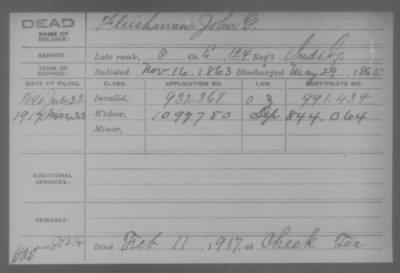 DEAD
NAME OF SOLDIER: Fleishman, John G.
SERVICE: Late rank, P Co. E, 124 Reg't Ind. Inf.
TERM OF SERVICE: Enlisted Nov. 16, 1863 Discharged May 29, 1865
DATE OF FILING. CLASS. APPLICATION NO. LAW. CERTIFICATE NO.
1890 July 22 Invalid, 932.368 991.434
1917 Mar 30 Widow, 1097780 844,064
Minor,
ADDITIONAL SERVICES:
REMARKS:
Died Feb 11, 1917, at Cheek Tex